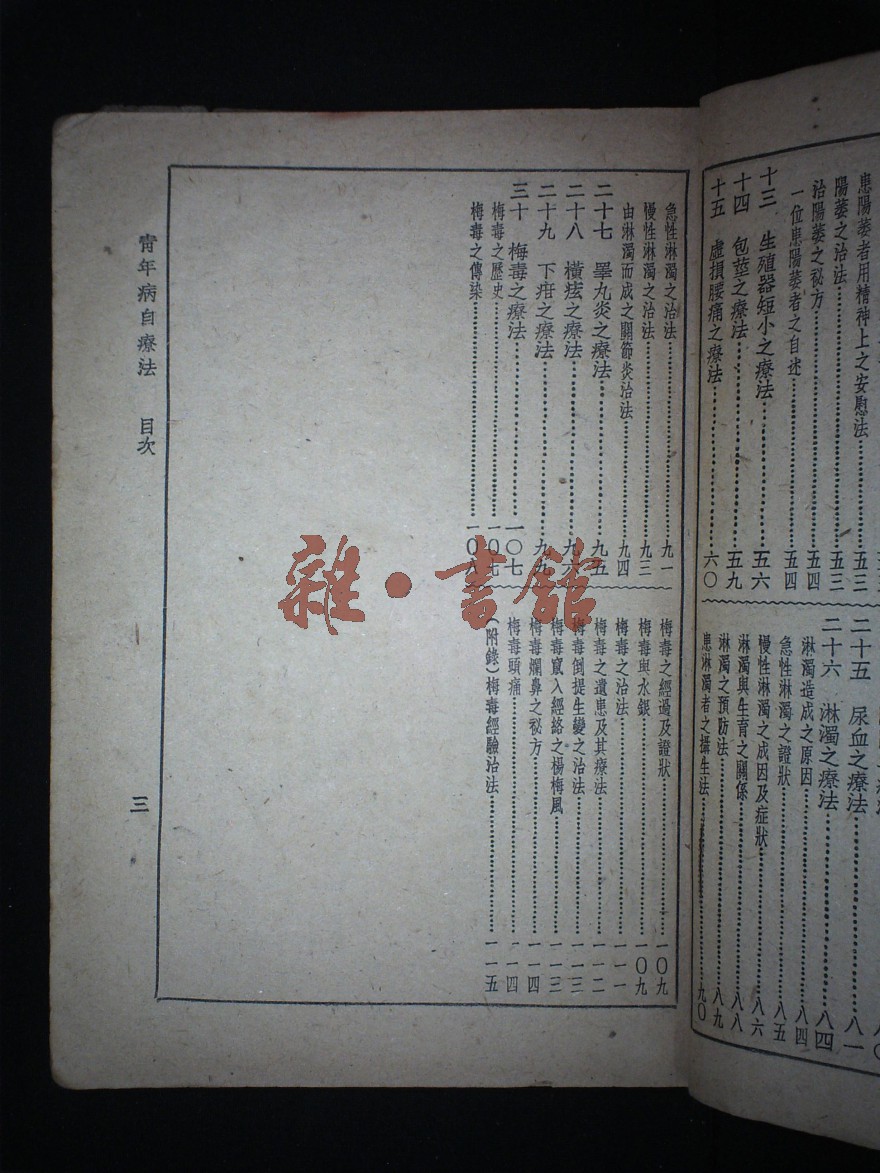 患陽萎者用精神上之安慰法……五三
陽萎之治法……五三
治陽萎之秘方……五四
一位患陽萎者之自述……五四
十三 生殖器短小之療法……五六
十四 包莖之療法……五九
十五 虛損腰痛之療法……六〇
二十五 尿血之療法……八一
二十六 淋濁之療法……八四
淋濁造成之原因……八四
急性淋濁之證狀……八五
慢性淋濁之成因及症狀……八六
淋濁與生育之關係……八八
淋濁之預防法……八九
患淋濁者之攝生法……九〇
急性淋濁之治法……九一
慢性淋濁之治法……九三
由淋濁而成之關節炎治法……九四
二十七 睪丸炎之療法……九五
二十八 橫痃之療法……九六
二十九 下疳之療法……九九
三十 梅毒之療法……一〇七
梅毒之歷史……一〇七
梅毒之傳染……一〇八
梅毒之經過及證狀……一〇九
梅毒與水銀……一〇九
梅毒之治法……一一一
梅毒之遺患及其療法……一一二
梅毒倒提生變之治法……一一三
梅毒竄入經絡之楊梅風……一一三
梅毒爛鼻之秘方……一一四
梅毒頭痛……一一四
(附錄)梅毒經驗治法……一一五
青年病自療法 目次
三
雜·書館